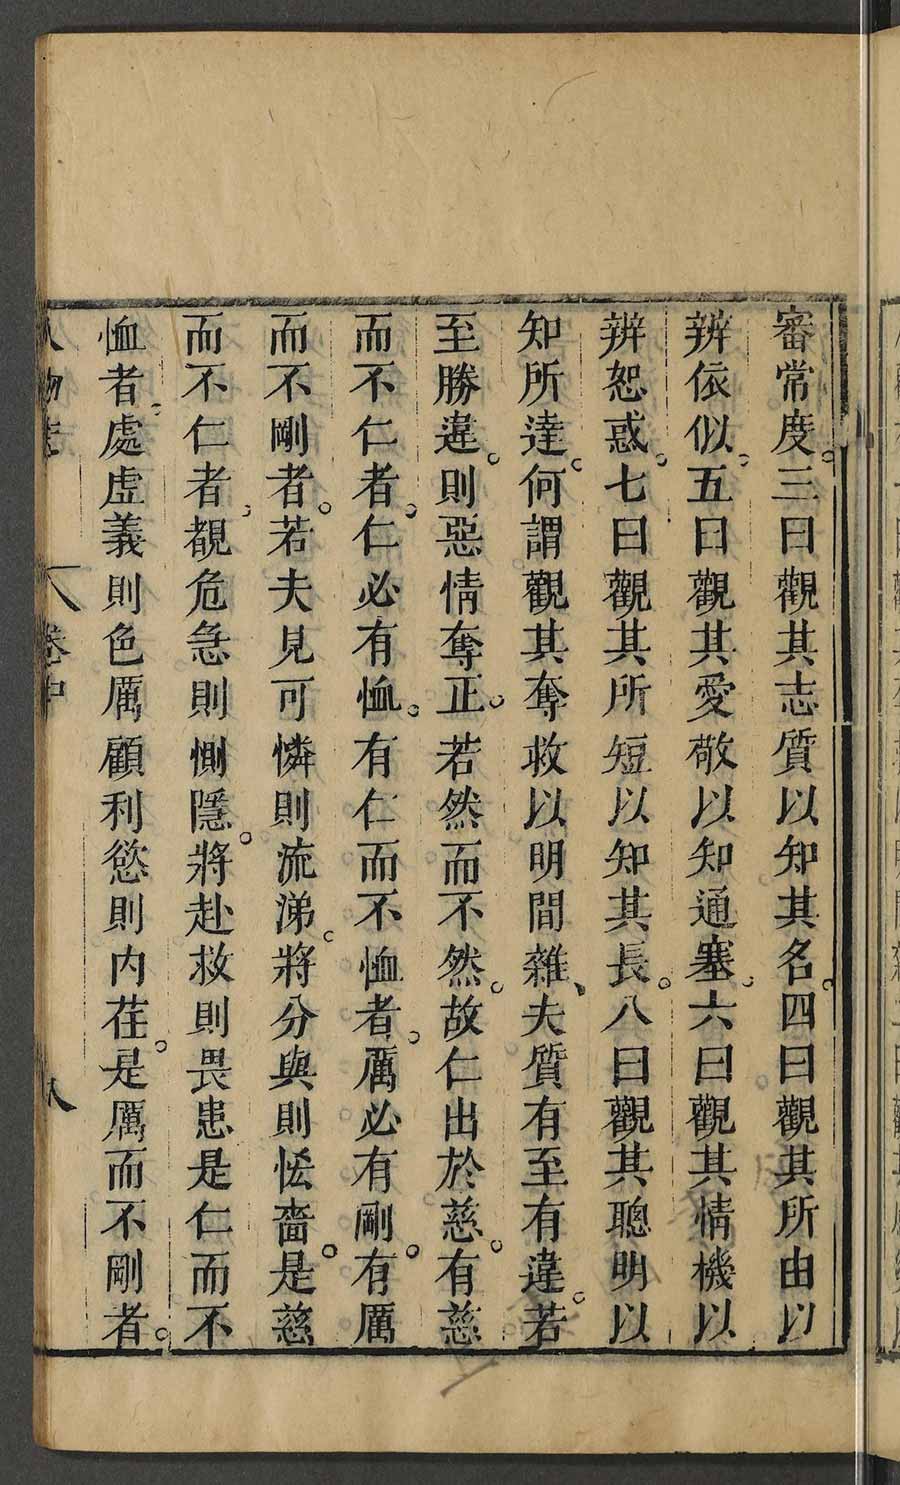 審常度。三曰觀其志質以知其名。四曰觀其所由以
辨依似。五曰觀其愛敬以知通塞。六曰觀其情機以
辨恕惑。七曰觀其所短以知其長。八曰觀其聰明以
知所達。何謂觀其奪救以明間雜、夫質有至有違。若
至勝違。則惡情奪正。若然而不然。故仁出於慈。有慈
而不仁者。仁必有恤。有仁而不恤者。厲必有剛。有厲
而不剛者。若夫見可憐則流涕。將分與則恡嗇。是慈
而不仁者。覩危急則惻隱。將赴救則畏患是仁而不
恤者。處虛義則色厲顧利慾則內荏。是厲而不剛者。
人物志 卷中 八